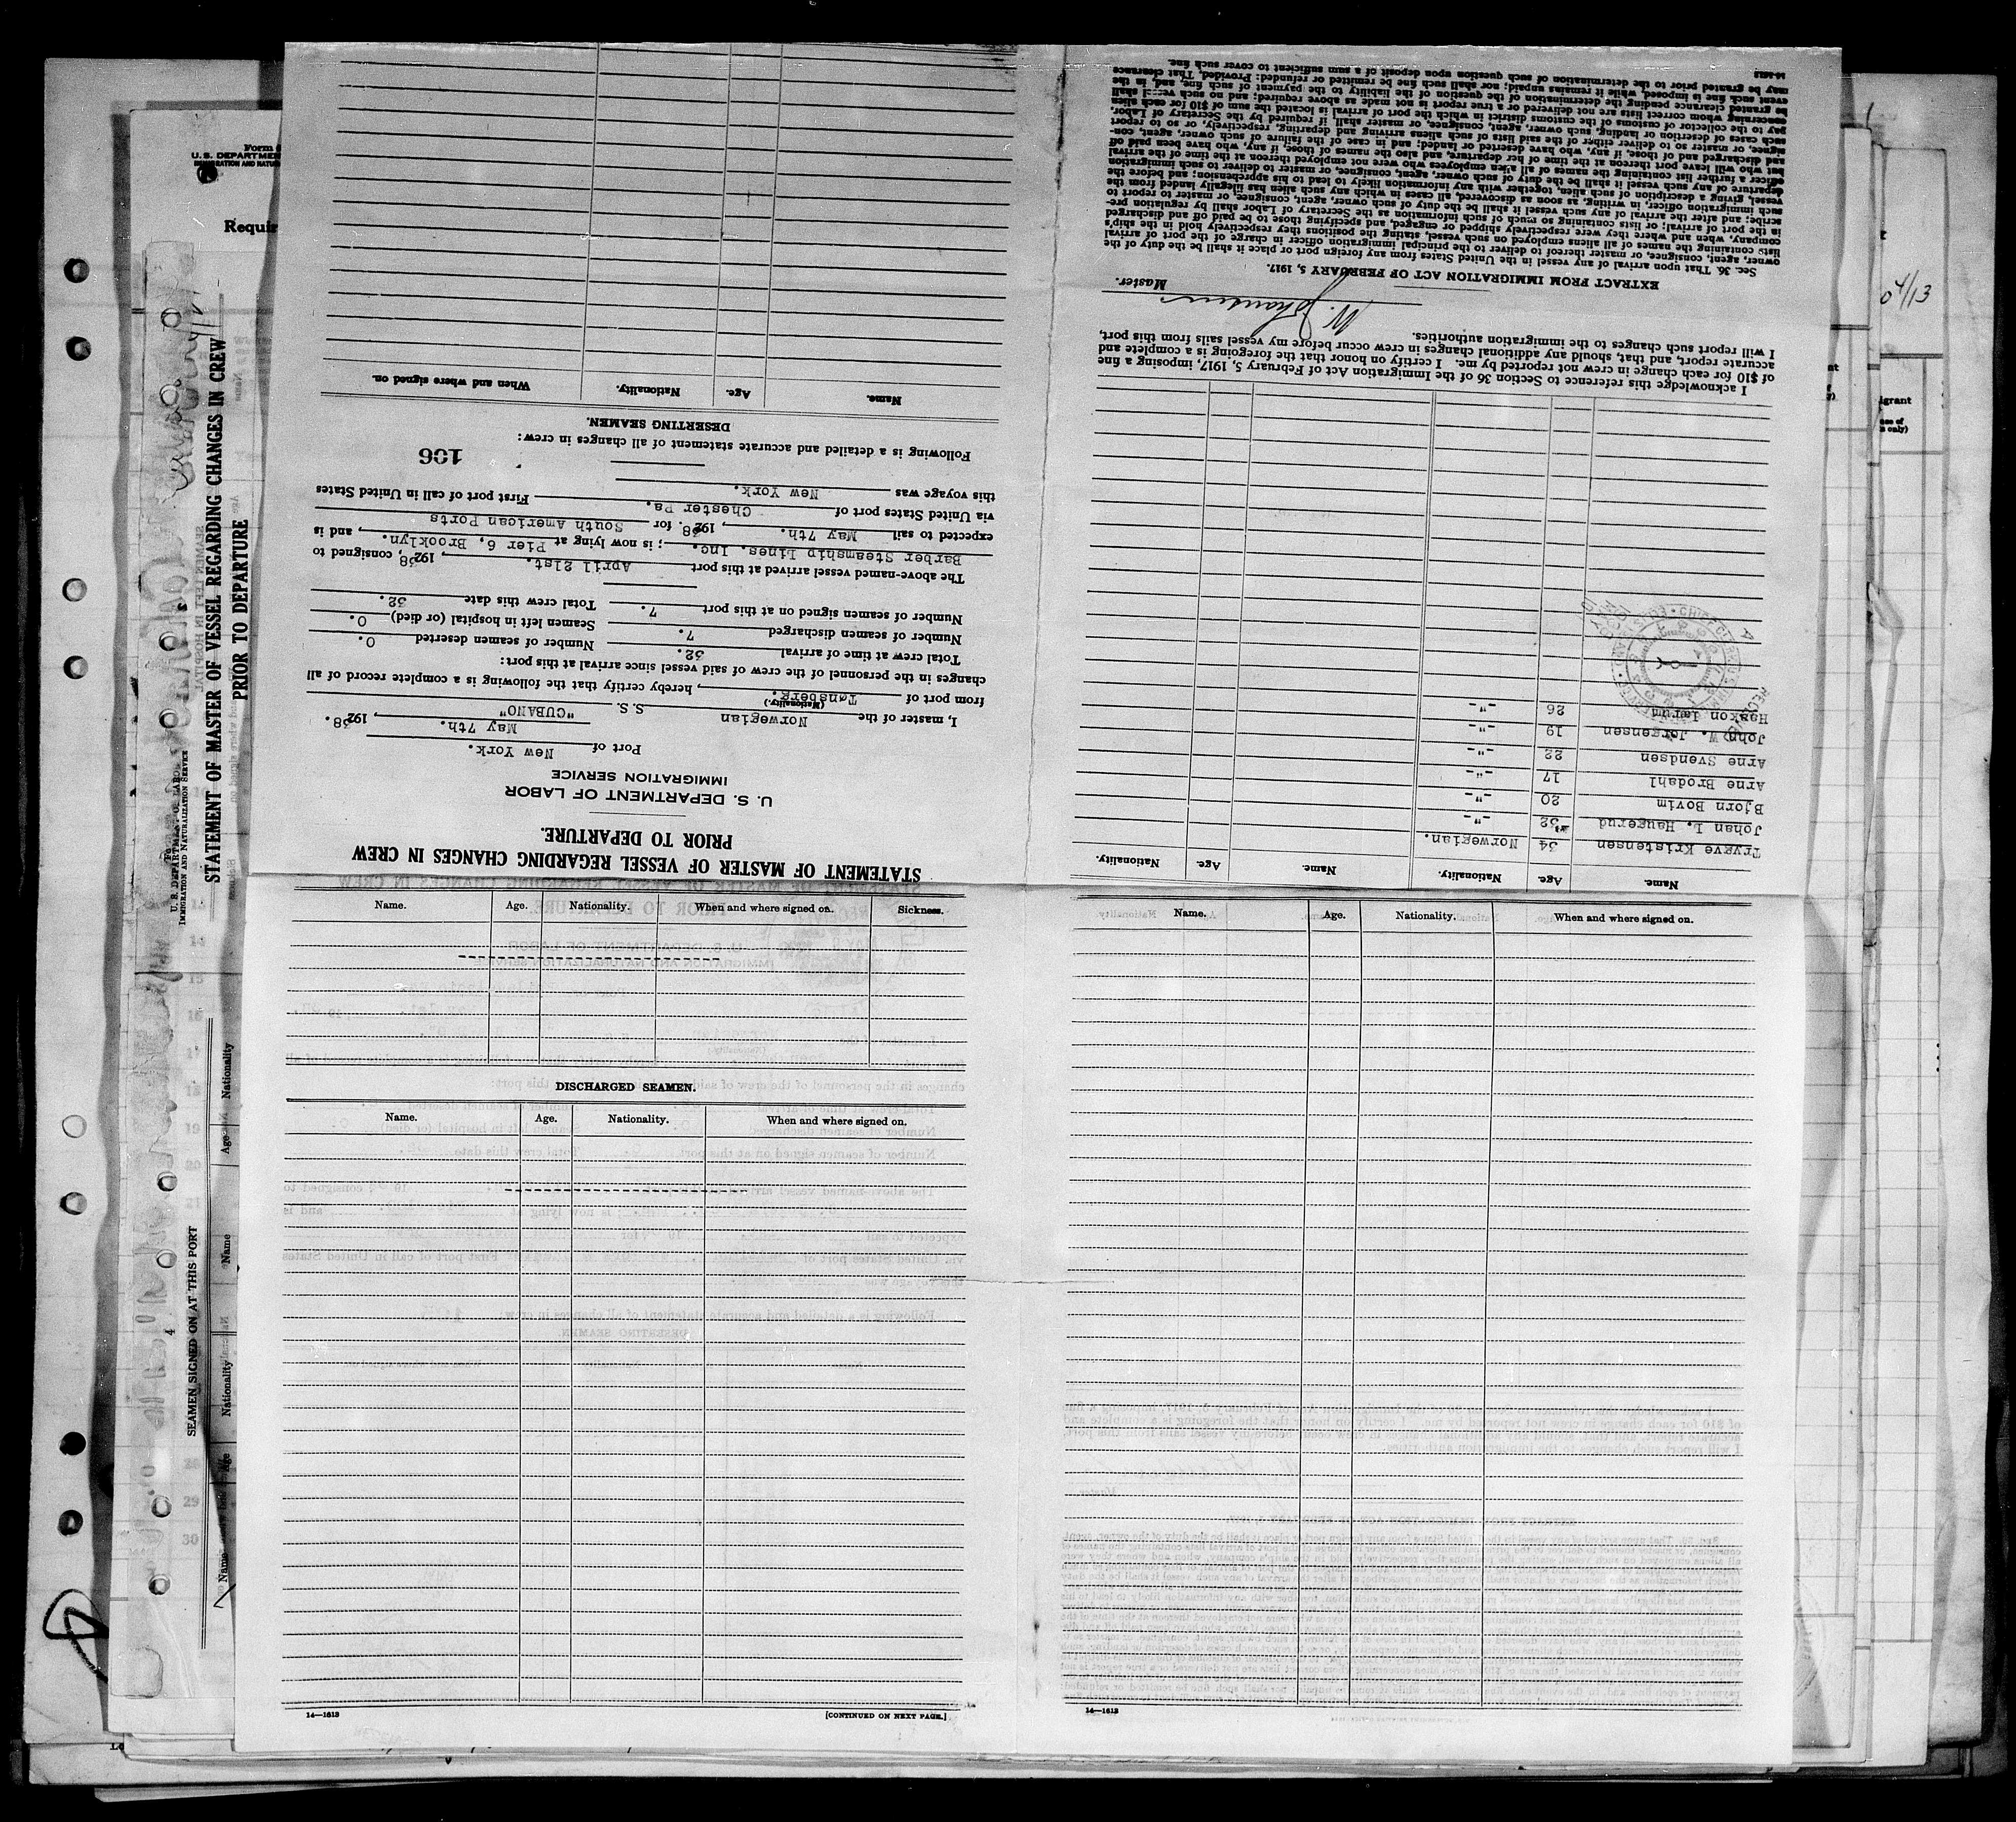 STATEMENT OF MASTER OF VESSEL REGARDING CHANGES IN CREW
PRIOR TO DEPARTURE.
U. S. DEPARTMENT OF LABOR
IMMIGRATION SERVICE
Port of New York.
May 7th. , 1938.
I, master of the Norwegian S.S. "CUBANO"
(Nationality.)
from port of Tønsberg. , hereby certify that the following is a complete record of all
changes in the personnel of the crew of said vessel since arrival at this port:
Total crew at time of arrival 32. Number of seamen deserted 0
Number of seamen discharged 7. Seamen left in hospital (or died) 0.
Number of seamen signed on at this port 7. Total crew this date 32.
The above-named vessel arrived at this port April 21st. , 1938, consigned to
Barber Steamship Lines. Inc. ; is now lying at Pier 6, Brooklyn. , and is
expected to sail May 7th. , 1938. for South American Ports
via United States port of Chester Pa. First port of call in United States
this voyage was New York.
106
Following is a detailed and accurate statement of all changes in crew:
DESERTING SEAMEN.
Name. Age. Nationality. When and where signed on.
Name. Age. Nationality. Name. Age. Nationality.
Trygve Kristensen 34 Norwegian.
Johan L. Haugerud 32 -"-
Bjorn Bovim 20 -"-
Arne Brodahl 17 -"-
Arne Svendsen 22 -"-
John W. Jorgensen 19 -"-
Haakon Larum 26 -"-
I acknowledge this reference to Section 36 of the Immigration Act of February 5, 1917, imposing a fine
of $10 for each change in crew not reported by me. I certify on honor that the foregoing is a complete and
accurate report, and that, should any additional changes in crew occur before my vessel sails from this port,
I will report such changes to the immigration authorities.
Master.
EXTRACT FROM IMMIGRATION ACT OF FEBRUARY 5, 1917.
Sec. 36. That upon arrival of any vessel in the United States from any foreign port or place it shall be the duty of the
owner, agent, consignee, or master thereof to deliver to the principal immigration officer in charge of the port of arrival
lists containing the names of all aliens employed on such vessel, stating the positions they respectively hold in the ship's
company, when and where they were respectively shipped or engaged, and specifying those to be paid off and discharged
in the port of arrival; or lists containing so much of such information as the Secretary of Labor shall by regulation pre-
scribe; and after the arrival of any such vessel it shall be the duty of such owner, agent, consignee, or master to report to
such immigration officer, in writing, as soon as discovered, all cases in which any such alien has illegally landed from the
vessel, giving a description of such alien, together with any information likely to lead to his apprehension; and before the
departure of any such vessel it shall be the duty of such owner, agent, consignee, or master to deliver to such immigration
officer a further list containing the names of all alien employees who were not employed thereon at the time of the arrival
but who will leave port thereon at the time of her departure, and also the names of those, if any, who have been paid off
and discharged and of those, if any, who have deserted or landed; and in case of the failure of such owner, agent, con-
signee, or master so to deliver either of the said lists of such aliens arriving and departing, respectively, or so to report
such cases of desertion or landing, such owner, agent, consignee, or master shall if required by the Secretary of Labor,
pay to the collector of customs of the customs district in which the port of arrival is located the sum of $10 for each alien
concerning whom correct lists are not delivered or a true report is not made as above required; and no such vessel shall
be granted clearance pending the determination of the question of the liability to the payment of such fine, and, in the
event such fine is imposed, while it remains unpaid; nor shall such fine be remitted or refunded: Provided, That clearance
may be granted prior to the determination of such question upon deposit of a sum sufficient to cover such fine.
Name. Age. Nationality. When and where signed on. Sickness.
DISCHARGED SEAMEN.
Name. Age. Nationality. When and where signed on.
14—1613
[CONTINUED ON NEXT PAGE.]
Name. Age. Nationality. When and where signed on.
14—1613
U. S. DEPARTMENT OF LABOR
IMMIGRATION AND NATURALIZATION SERVICE
STATEMENT OF MASTER OF VESSEL REGARDING CHANGES IN CREW
PRIOR TO DEPARTURE
4
SEAMEN SIGNED ON AT THIS PORT
Name Age Nationality Name Age Nationality
Form
U. S. DEPARTMEN
Requir
4/13